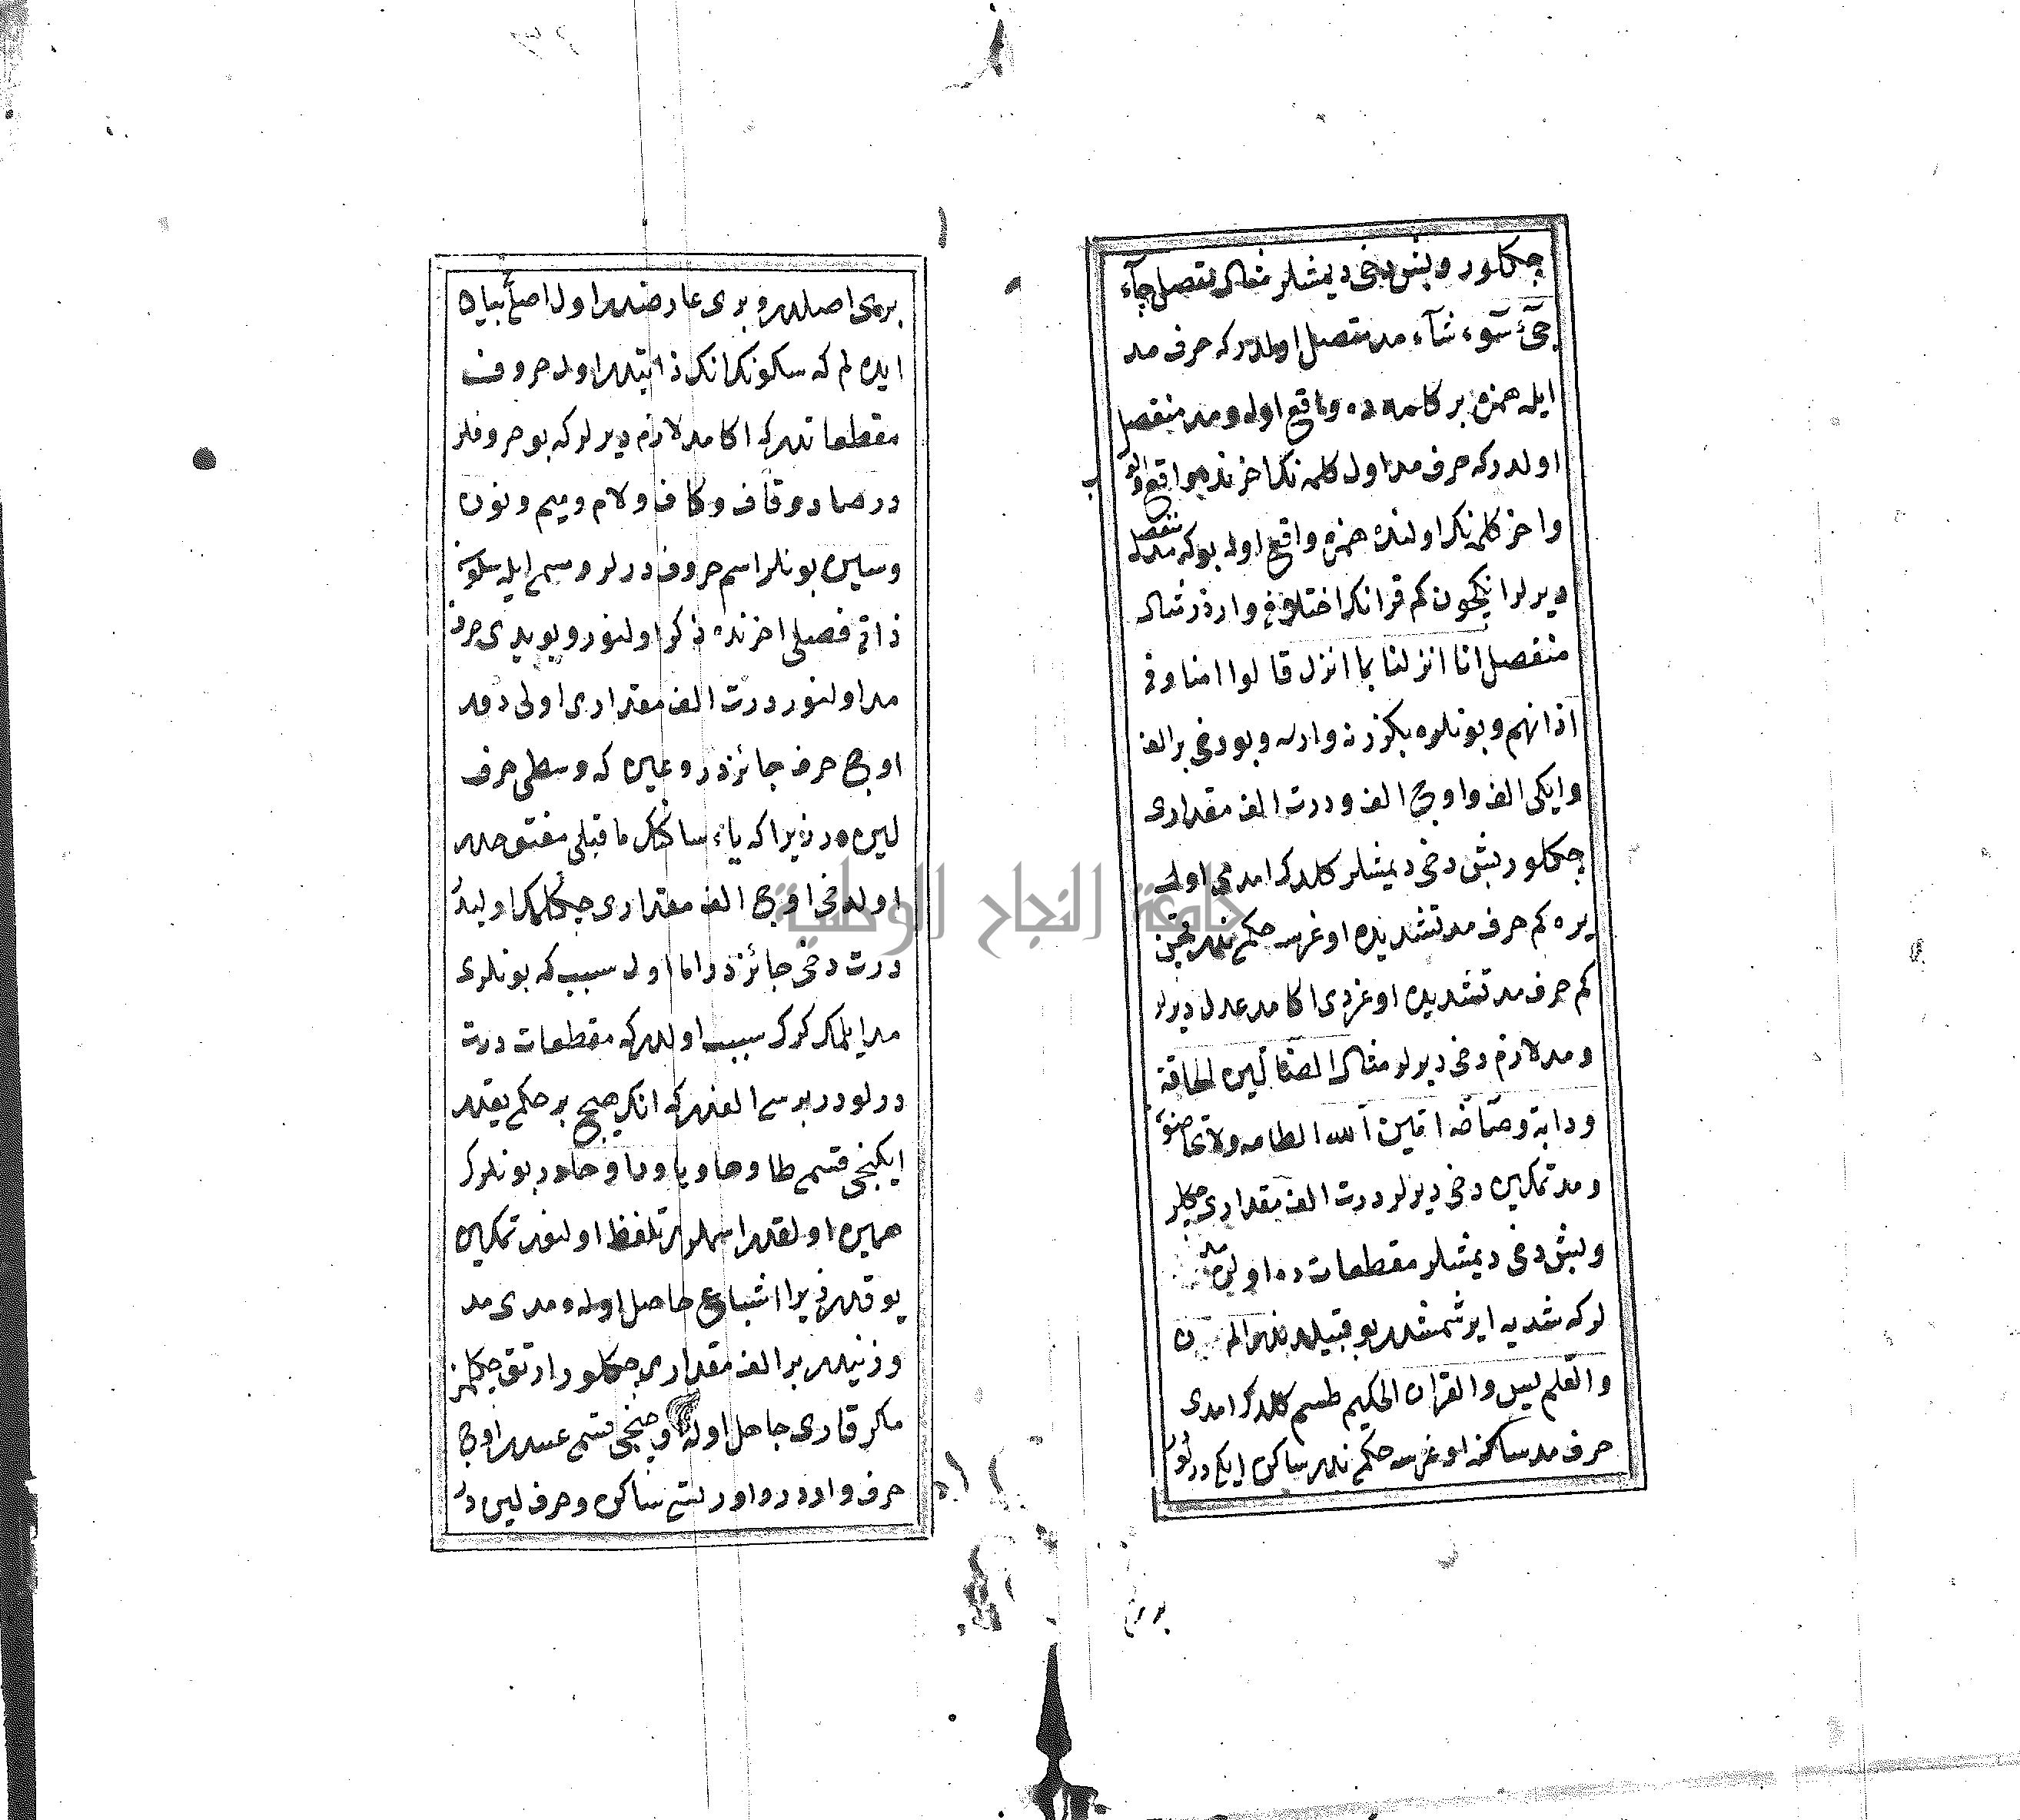 چكلور و بش دخى ديمشلر مثال متصل جآء
جئ سوء شآء مد متصل اولدركه حرف مد
ايله همزه بر كلمه ده واقع اوله و مد منفصل
اولدركه حرف مد اول كلمه نك اخرنده واقع اولور
واخر كلمه نك اولنده همزه واقع اوله بوكه مد منفصل
ديرلر انيكچون كم قرانك اختلافى واردر مثال
منفصل انا انزلنا بما انزل قالوا امنا وفى
اذانهم و بونلره بكزر نه وارسه و بو دخى بر الف
وايكى الف واوچ الف ودرت الف مقدارى
چكلور بش دخى ديمشلر كلدك امدى اول
يره كم حرف مد تشديده اوغرسه حكمى ندر قچن
كم حرف مد تشديده اوغردى اكا مد عدل ديرلر
ومد لازم دخى ديرلر مثال الضالين الحاقة
ودابة وصآخه اتين الله الطامه ولا
ومد تمكين دخى ديرلر درت الف مقدارى چكلر
وبش دخى ديمشلر مقطعات ده اولن مد
لركه شديه ايرشمشدر بو قبيلدندر الم ن
والقلم يس والقران الحكيم طسم كلدك امدى
حرف مد ساكنه اوغرسه حكمى ندر ساكن ايكى درلو
برى اصلدر و برى عارضدر اول اصلى بيان
ايده لم كه سكونك انك ذاتيدر اول حروف
مقطعاتدركه اكا مد لازم ديرلركه بو حروفلر
در صاد وقاف وكاف ولام وميم ونون
وسين بونلر اسم حروف درلر وسمى ايله سكون
ذاتى فصلى اخرنده ذكر اولنور و بو يدى حرف
مد اولنور درت الف مقدارى اولى در
اوچ حرف جائزدر وعين كه وسطى حرف
ليندر زيراكه ياء ساكنك ماقبلى مفتوحدر
اول دخى اوچ الف مقدارى چكلمك اوليدر
درت دخى جائزدر اما اول سبب كه بونلرى
مد ايلمك كرك سبب اولدركه مقطعات درت
درلودر برسى الفدركه انك هيچ بر حكمى يوقدر
ايكنجى قسمى طا وها ويا ورا وحادر بونلرك
همين اولقدر اسملر تلفظ اولنور تمكين
يوقدر زيرا اشباع حاصل اوله ومدى مد
وزنيدر بر الف مقدارى چكلور ارتق چكلمز
مكر قارى جاهل اوله اوچنجى قسمى عسدر اوچ
حرف واردر واورتسى ساكن وحرف ليندر
جامعة النجاح الوطنية